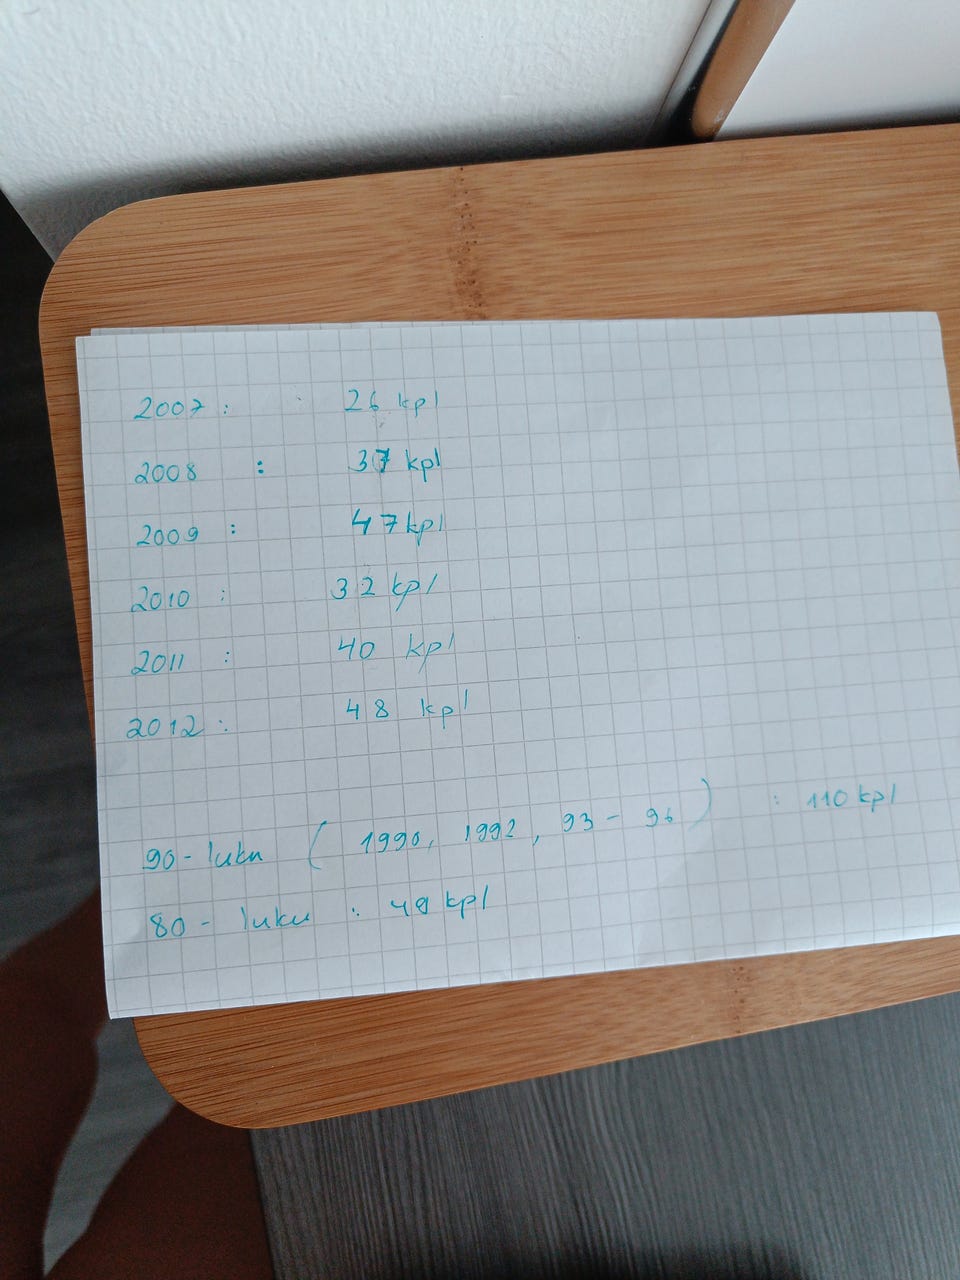 2007: 26 kpl
2008 : 37 kpl
2009 : 47 kpl
2010 : 32 kpl
2011 : 40 kpl
2012 : 48 kpl
90-luku ( 1990, 1992, 93-96 ) : 110 kpl
80-luku : kpl